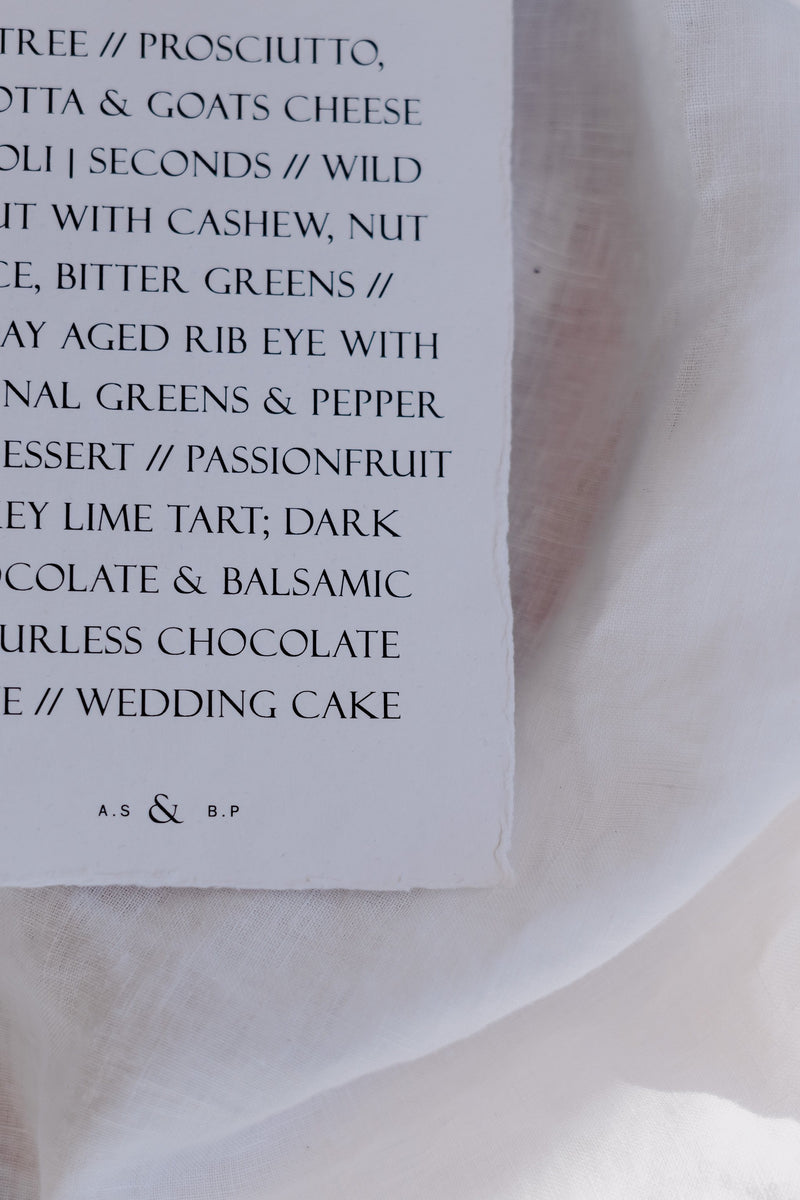 TREE // PROSCIUTTO,
OTTA & GOATS CHEESE
OLI | SECONDS // WILD
UT WITH CASHEW, NUT
CE, BITTER GREENS //
AY AGED RIB EYE WITH
NAL GREENS & PEPPER
ESSERT // PASSIONFRUIT
EY LIME TART; DARK
OCOLATE & BALSAMIC
URLESS CHOCOLATE
E // WEDDING CAKE
A.S & B.P